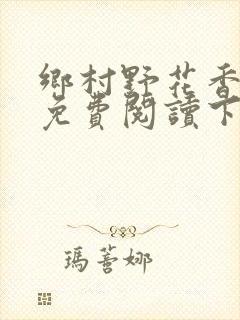 鄉村野花香
免費閱讀下
瑪蓍娜